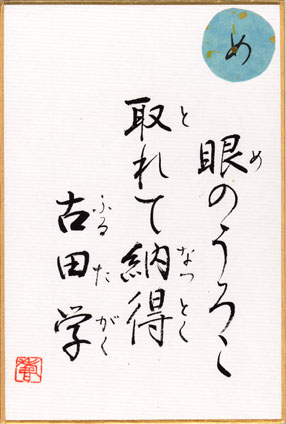 め
眼のうろこ
め
取れて納得
と なっとく
古田学
ふるた がく